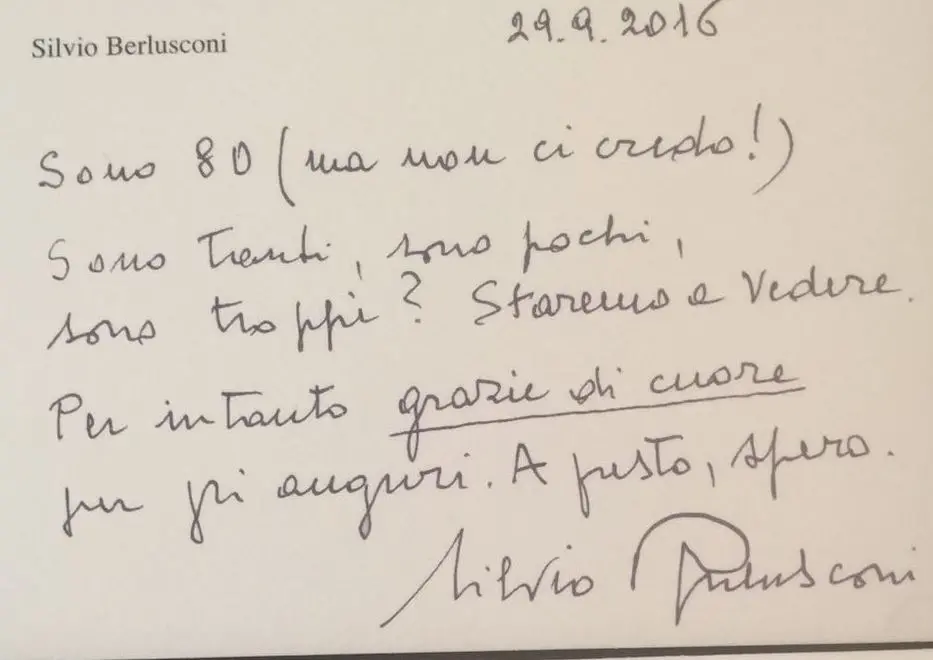 Silvio Berlusconi
29.9.2016
Sono 80 (ma non ci credo!)
Sono tanti, sono pochi,
sono troppi? Staremo a vedere.
Per intanto grazie di cuore
per gli auguri. A presto, spero.
Silvio Berlusconi